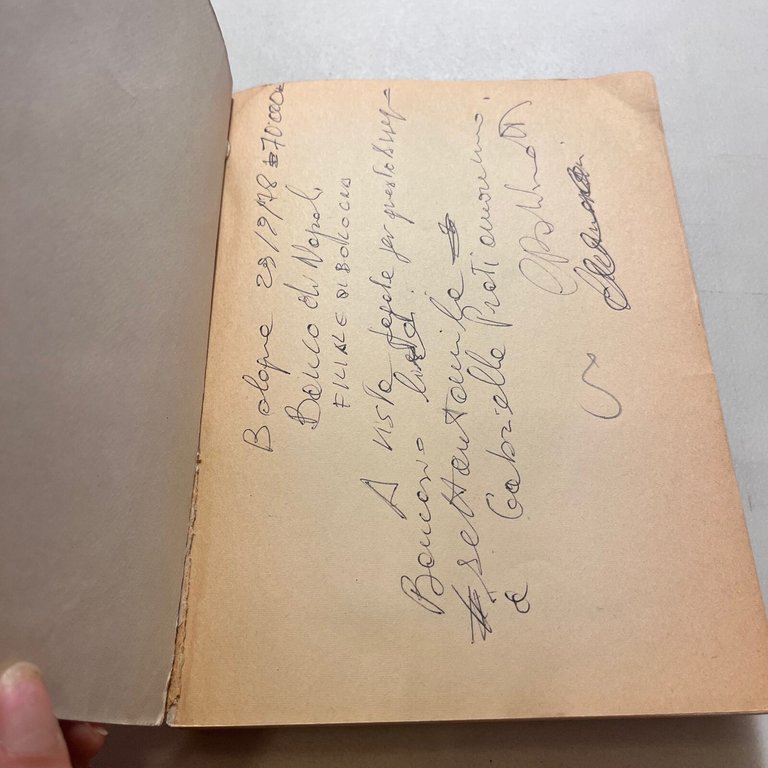 Bologna 23/9/78 #70000#
Banco di Napoli
FILIALE DI BOLOGNA
A vista pagate per questo assegno
Bancario lire
settantamila #
a Gabriella Prati